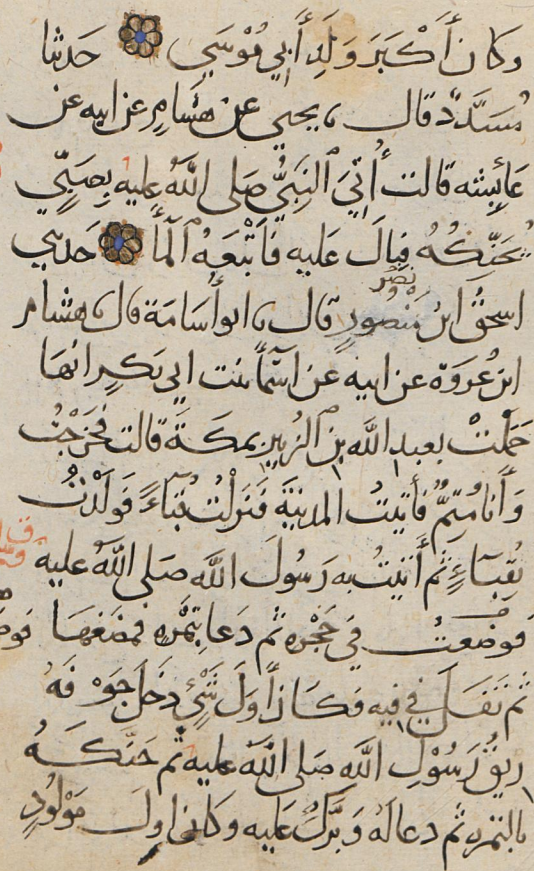 وكان أَكْبَرَ وَلَدِ أَبي مُوْسَي حدثنا
مُسَدَّدٌ قال نا يحيي عن هشامٍ عن ابيه عن
عَائِشه قالت أُتِيَ النَّبِيُّ صَلى اللهُ عليه بِصَبِيٍّ
يُحَنِّكُهُ فبالَ عَليه فأَتْبَعَهُ الْمَاءَ حَدثني
اسحقُ ابنُ مَنْصورٍ نصر قال نا ابو أُسَامَة قال نا هشام
ابنُ عُروَةَ عن ابيه عَن اسْمَاءَ بنت ابي بَكرٍ انهَا
حَمَلَتْ بعبدِ الله بن الزُّبيرِ بمكَةَ قالت فخَرَجْتُ
وَأَنا مُتِمٌّ فأتيتُ المدينَةَ فَنَزَلْتُ قُبَاءً فَولَدْتُ
بقُبَاءٍ ثم أَتَيْتُ به رَسُولَ الله صَلى اللهُ عليه
فوضعتُ في حَجْرِه ثم دَعا بتَمْرَهٍ فمضغهَا
ثم تَفَلَ في فِيه فكانَ أَوَلَ شَيْءٍ دَخلَ جَوْفَهُ
رِيقُ رَسُوْلِ الله صَلى اللهُ عليه ثم حَنَّكَهُ
بالتمره ثم دعا لَهُ وَبَرَّكَ عَليه وكان اولَ مَوْلُودٍ